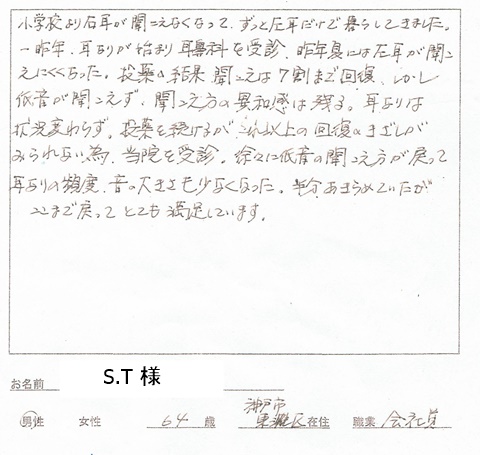 小学校より右耳が聞こえなくなって、ずっと左耳だけで暮らしてきました。
一昨年、耳なりが始まり耳鼻科を受診、昨年夏には左耳が聞こ
えにくくなった。投薬の結果聞こえは7割まで回復、しかし
低音が聞こえず、聞こえ方の異和感は残る。耳なりは
状況変わらず。投薬を続けるが、これ以上の回復のきざしが
みられない為、当院を受診。徐々に低音の聞こえ方が戻って
耳なりの頻度、音の大きさも少なくなった。半分あきらめていたが
ここまで戻ってとても満足しています。
お名前 S.T 様
男性 女性 64 歳 神戸市東灘区在住 職業 会社員